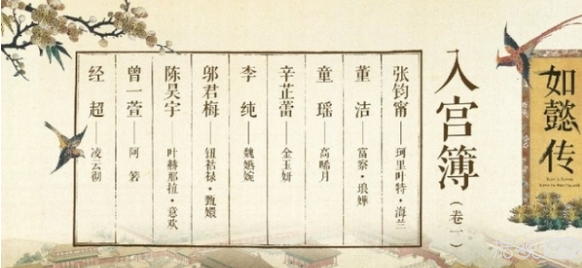 如懿传
入宫簿（卷一）
张钧甯——珂里叶特·海兰
董洁——富察·琅嬅
童瑶——高晞月
辛芷蕾——金玉妍
李纯——魏嬿婉
邬君梅——钮祜禄·甄嬛
陈昊宇——叶赫那拉·意欢
曾一萱——阿箬
经超——凌云彻